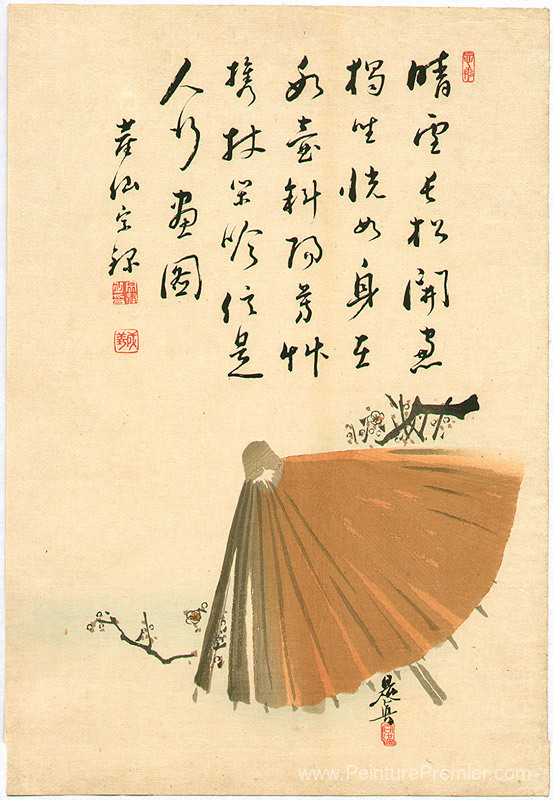 晴雪長松開窓
獨坐恍如身在
氷壺斜陽芳艸
携杖閑吟信是
人行畫圖
是真
www.PeinturePremier.com